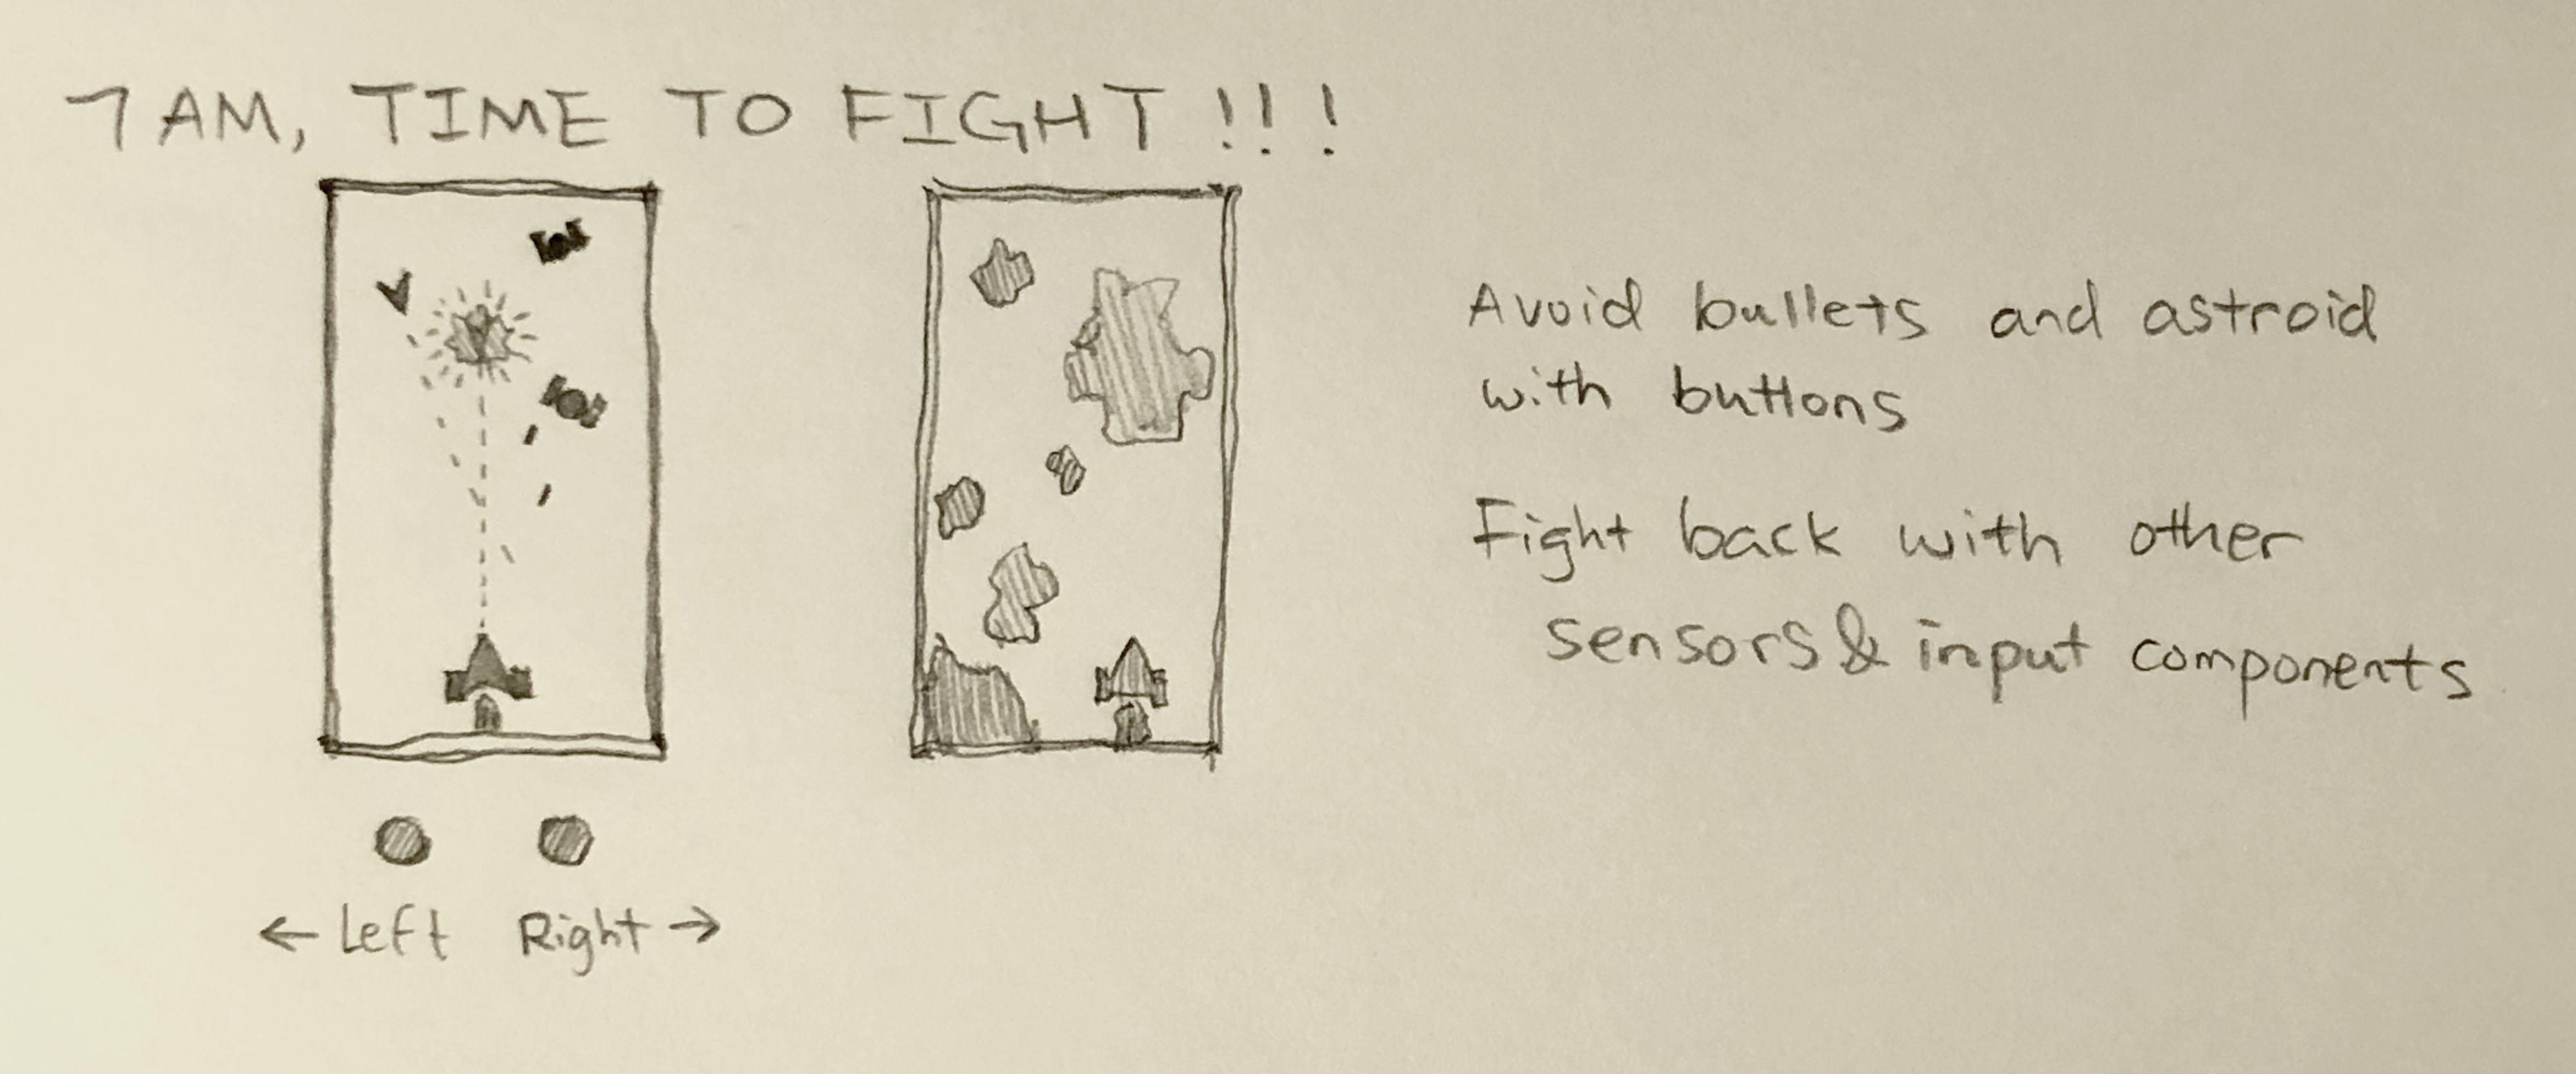 7 AM, TIME TO FIGHT !!!
Avoid bullets and astroid
with buttons
Fight back with other
sensors & input components
← Left Right →